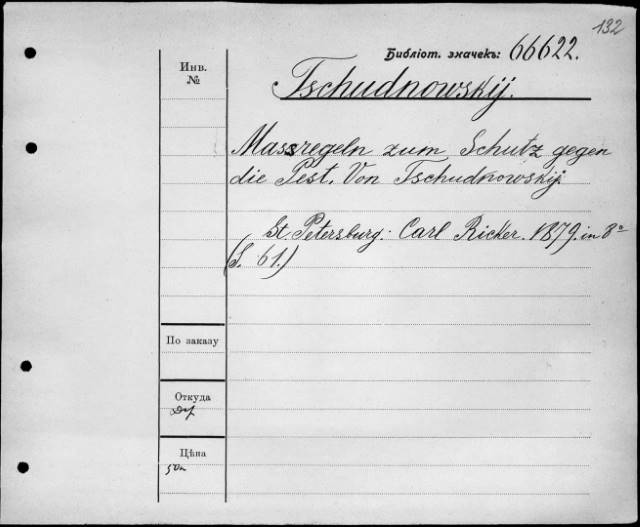 132
Библіот. значекъ: 66622.
Инв.
№
Tschudnowskij.
Massregeln zum Schutz gegen
die Pest. Von Tschudnowskij
St. Petersburg. Carl Ricker. 1879. in 8°
(S. 61.)
По заказу
Откуда
Цѣна